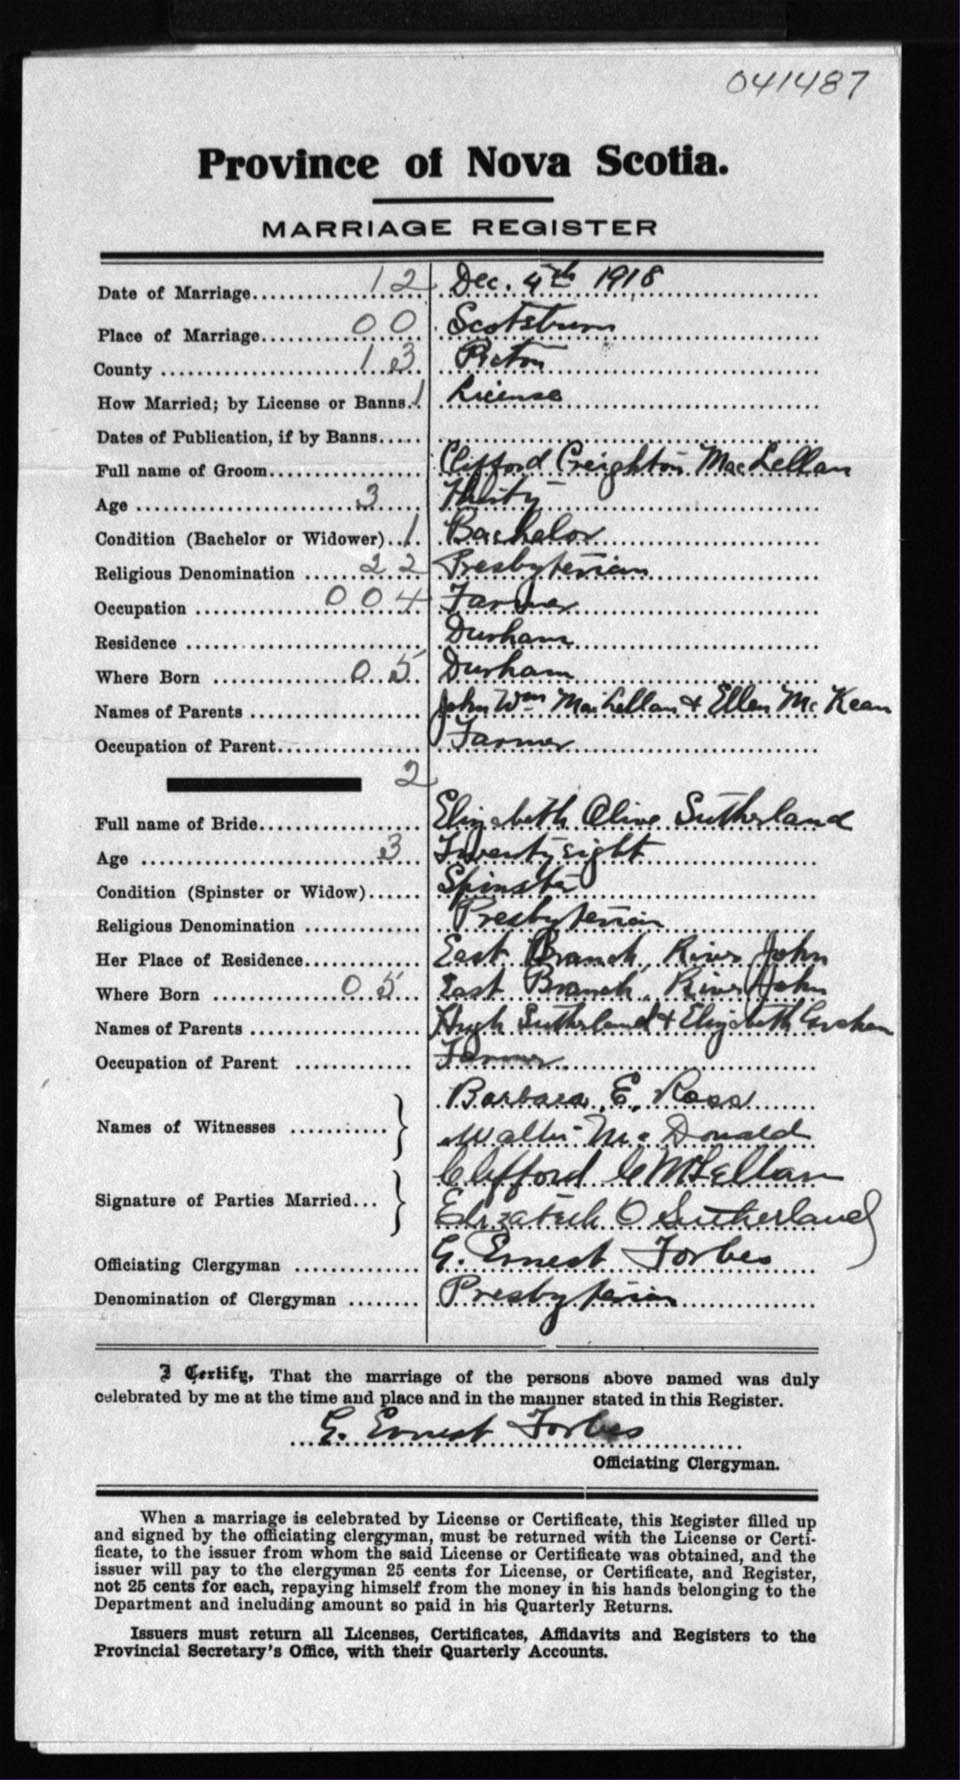 041487
Province of Nova Scotia.
MARRIAGE REGISTER
Date of Marriage 12 Dec. 4th 1918
Place of Marriage 00 Scotsburn
County 13 Pictou
How Married; by License or Banns 1 License
Dates of Publication, if by Banns
Full name of Groom Clifford Creighton MacLellan
Age 3 Thirty
Condition (Bachelor or Widower) 1 Bachelor
Religious Denomination 22 Presbyterian
Occupation 004 Farmer
Residence Durham
Where Born 05 Durham
Names of Parents John Wm MacLellan & Ellen McKean
Occupation of Parent Farmer
2
Full name of Bride Elizabeth Olive Sutherland
Age 3 Twenty eight
Condition (Spinster or Widow) Spinster
Religious Denomination Presbyterian
Her Place of Residence East Branch, River John
Where Born 05 East Branch, River John
Names of Parents Hugh Sutherland & Elizabeth
Occupation of Parent Farmer
Names of Witnesses } Barbara E. Ross
Walter McDonald
Signature of Parties Married } Clifford C McLellan
Elizabeth O Sutherland
Officiating Clergyman G. Ernest Forbes
Denomination of Clergyman Presbyterian
I Certify, That the marriage of the persons above named was duly
celebrated by me at the time and place and in the manner stated in this Register.
G. Ernest Forbes
Officiating Clergyman.
When a marriage is celebrated by License or Certificate, this Register filled up
and signed by the officiating clergyman, must be returned with the License or Certi-
ficate, to the issuer from whom the said License or Certificate was obtained, and the
issuer will pay to the clergyman 25 cents for License, or Certificate, and Register,
not 25 cents for each, repaying himself from the money in his hands belonging to the
Department and including amount so paid in his Quarterly Returns.
Issuers must return all Licenses, Certificates, Affidavits and Registers to the
Provincial Secretary's Office, with their Quarterly Accounts.